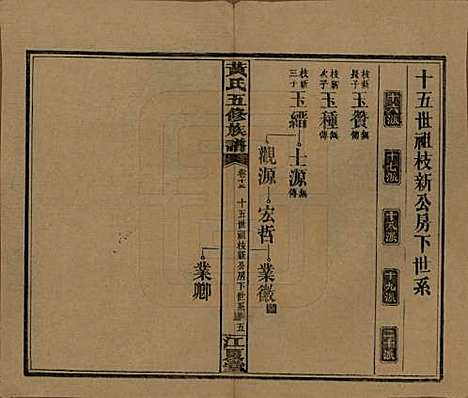 十五世祖枝新公房下世系
十六派 十七派 十八派 十九派 二十派
枝新長子 玉贊 無傳
枝新次子 玉種 無傳
枝新三子 玉縉 士源 無傳
觀源 宏哲 業徽
業卿
黃氏五修族譜 十五世祖枝新公房下世系 五 江夏堂